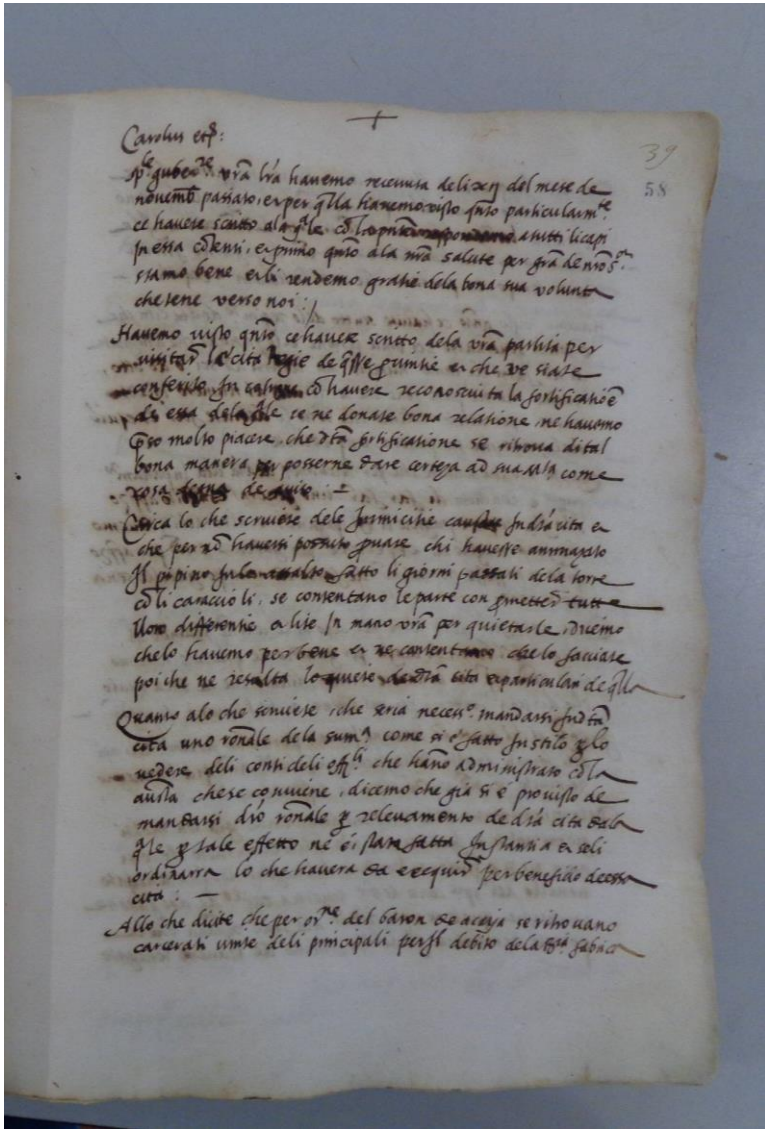 +
39
58
Carolus etc̃:
sp.le guber.re vr̃a lr̃a havemo receuuta deli xxij del mese de
novemb̃ passato, et per q̃lla havemo visto q̃nto particularm.te
ce havete scritto ala q̃le, cõ la p̃nte respondemo a tutti li capi
In essa cõtenti, et primo q̃nto ala nr̃a salute per gr̃a de nr̃o S.or
stamo bene et li rendemo gratie dela bona sua volunta
che tene verso noi:/
Havemo visto q̃nto ce havete scritto dela vr̃a partita per
visitar le cita Regie de q̃sse puintie et che ve state
conferito In cõ havere reconosciuta la fortificatiõe
de essa dela q̃le ce ne donate bona relatione, ne havemo
p̃so molto piacere, che dr̃a fortificatione se ritrova di tal
bona manera per posserne dare certeza ad sua M.tà come
cosa degna de aviso: –
Circa lo che scrivete dele Inimicitie causate In dr̃a cita et
che per nõ haversi possuto p̃vare chi havesse ammazato
Il pipino In lo assalto fatto li giorni passati dela torre
cõ li caraccioli, se contentano le parte con p̃metter tutte
lloro differentie et lite In mano vr̃a per quietarle, dicimo
che lo havemo per bene et ne contentamo che lo facciate
poi che ne resulta lo quiete de dr̃a cita et particulari de q̃lla
Quanto alo che scrivete, che seria necess.o mandarsi In dr̃a
cita uno rõnale dela sum.ria come si è fatto In stilo p lo
vedere deli conti deli off.li che hãno administrato cõ la
che se conviene, dicemo che gia si è provisto de
mandarsi dr̃o rõnale p relevamento de dr̃a cita dala
q̃le p tale effetto ne è stata fatta Instantia et seli
ordinarra lo che havera da exequir per beneficio de essa
cita: —
Allo che dicite che per or.ne del baron de acaya se ritrovano
carcerati vinte deli principali per Il debito dela